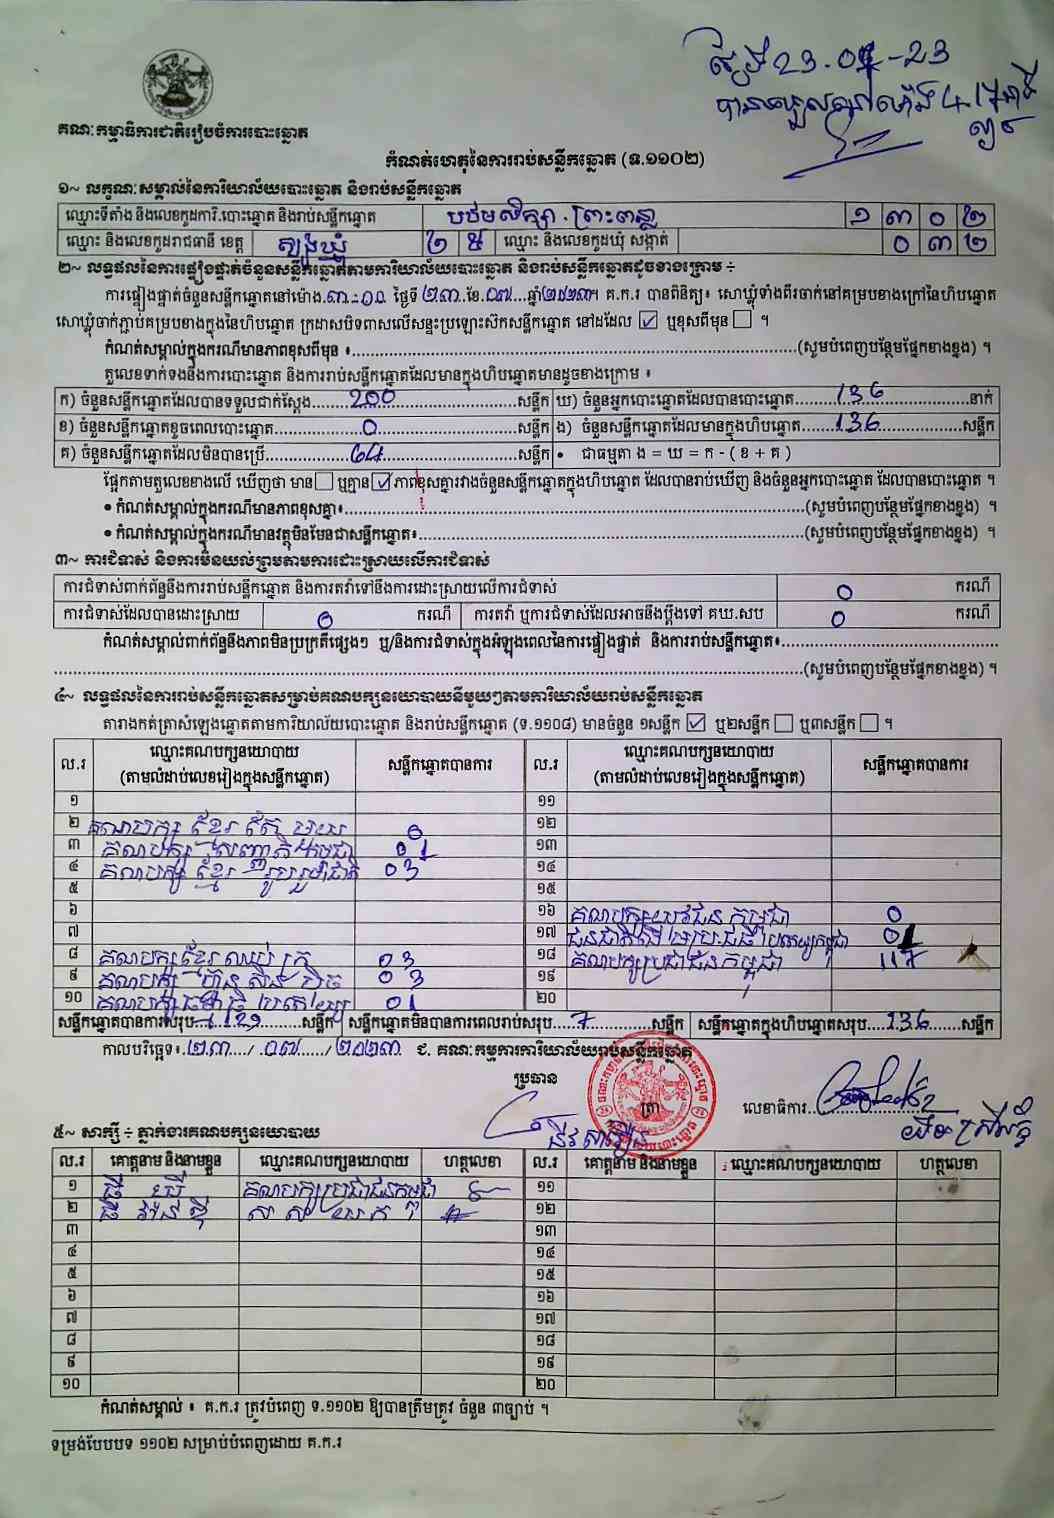 ថ្ងៃទី 23.07-23
គណៈកម្មាធិការជាតិរៀបចំការបោះឆ្នោត
កំណត់ហេតុនៃការរាប់សន្លឹកឆ្នោត (ទ.១១០២)
១~ លក្ខណៈសម្គាល់នៃការិយាល័យបោះឆ្នោត និងរាប់សន្លឹកឆ្នោត
ឈ្មោះទីតាំង និងលេខកូដការិ.បោះឆ្នោត និងរាប់សន្លឹកឆ្នោត បឋមសិក្សា ១ ៣ ០ ២
ឈ្មោះ និងលេខកូដរាជធានី ខេត្ត ត្បូងឃ្មុំ ២ ៥ ឈ្មោះ និងលេខកូដឃុំ សង្កាត់ ០ ៣ ២
២~ លទ្ធផលនៃការផ្ទៀងផ្ទាត់ចំនួនសន្លឹកឆ្នោតតាមការិយាល័យបោះឆ្នោត និងរាប់សន្លឹកឆ្នោតដូចខាងក្រោម ÷
ការផ្ទៀងផ្ទាត់ចំនួនសន្លឹកឆ្នោតនៅម៉ោង ៣:០០ ថ្ងៃទី ២៣ ខែ ០៧ ឆ្នាំ២០២៣។ គ.ក.រ បានពិនិត្យ៖ សោឃ្លុំទាំងពីរចាក់នៅគម្របខាងក្រៅនៃហិបឆ្នោត
សោឃ្លុំចាក់ភ្ជាប់គម្របខាងក្នុងនៃហិបឆ្នោត ក្រដាសបិទពាសលើសន្ទះប្រឡោះស៊កសន្លឹកឆ្នោត នៅដដែល ☑ ឬខុសពីមុន ☐ ។
កំណត់សម្គាល់ក្នុងករណីមានភាពខុសពីមុន ៖ (សូមបំពេញបន្ថែមផ្នែកខាងខ្នង) ។
តួលេខទាក់ទងនឹងការបោះឆ្នោត និងការរាប់សន្លឹកឆ្នោតដែលមានក្នុងហិបឆ្នោតមានដូចខាងក្រោម ៖
ក) ចំនួនសន្លឹកឆ្នោតដែលបានទទួលជាក់ស្តែង 200 សន្លឹក ឃ) ចំនួនអ្នកបោះឆ្នោតដែលបានបោះឆ្នោត 136 នាក់
ខ) ចំនួនសន្លឹកឆ្នោតខូចពេលបោះឆ្នោត 0 សន្លឹក ង) ចំនួនសន្លឹកឆ្នោតដែលមានក្នុងហិបឆ្នោត 136 សន្លឹក
គ) ចំនួនសន្លឹកឆ្នោតដែលមិនបានប្រើ 64 សន្លឹក • ជាធម្មតា ង = ឃ = ក - ( ខ + គ )
ផ្អែកតាមតួលេខខាងលើ ឃើញថា មាន ☐ ឬគ្មាន ☑ ភាពខុសគ្នារវាងចំនួនសន្លឹកឆ្នោតក្នុងហិបឆ្នោត ដែលបានរាប់ឃើញ និងចំនួនអ្នកបោះឆ្នោត ដែលបានបោះឆ្នោត ។
• កំណត់សម្គាល់ក្នុងករណីមានភាពខុសគ្នា៖ (សូមបំពេញបន្ថែមផ្នែកខាងខ្នង) ។
• កំណត់សម្គាល់ក្នុងករណីមានវត្ថុមិនមែនជាសន្លឹកឆ្នោត៖ (សូមបំពេញបន្ថែមផ្នែកខាងខ្នង) ។
៣~ ការជំទាស់ និងការមិនយល់ព្រមតាមការដោះស្រាយលើការជំទាស់
ការជំទាស់ពាក់ព័ន្ធនឹងការរាប់សន្លឹកឆ្នោត និងការតវ៉ាទៅនឹងការដោះស្រាយលើការជំទាស់ 0 ករណី
ការជំទាស់ដែលបានដោះស្រាយ 0 ករណី ការតវ៉ា ឬការជំទាស់ដែលអាចនឹងប្តឹងទៅ គឃ.សប 0 ករណី
កំណត់សម្គាល់ពាក់ព័ន្ធនឹងភាពមិនប្រក្រតីផ្សេងៗ ឬ/និងការជំទាស់ក្នុងអំឡុងពេលនៃការផ្ទៀងផ្ទាត់ និងការរាប់សន្លឹកឆ្នោត៖
(សូមបំពេញបន្ថែមផ្នែកខាងខ្នង) ។
៤~ លទ្ធផលនៃការរាប់សន្លឹកឆ្នោតសម្រាប់គណបក្សនយោបាយនីមួយៗតាមការិយាល័យរាប់សន្លឹកឆ្នោត
តារាងកត់ត្រាសំឡេងឆ្នោតតាមការិយាល័យបោះឆ្នោត និងរាប់សន្លឹកឆ្នោត (ទ.១១០៨) មានចំនួន ១សន្លឹក ☑ ឬ២សន្លឹក ☐ ឬ៣សន្លឹក ☐ ។
ល.រ ឈ្មោះគណបក្សនយោបាយ (តាមលំដាប់លេខរៀងក្នុងសន្លឹកឆ្នោត) សន្លឹកឆ្នោតបានការ ល.រ ឈ្មោះគណបក្សនយោបាយ (តាមលំដាប់លេខរៀងក្នុងសន្លឹកឆ្នោត) សន្លឹកឆ្នោតបានការ
១ ១១
២ គណបក្ស ខ្មែរ តែ មួយ 0 ១២
៣ គណបក្ស សញ្ជាតិកម្ពុជា 01 ១៣
៤ គណបក្ស ខ្មែរ រួបរួមជាតិ 03 ១៤
៥ ១៥
៦ ១៦ គណបក្សយុវជន កម្ពុជា 0
៧ ១៧ ជនជាតិដើមប្រជាធិបតេយ្យកម្ពុជា 01
៨ គណបក្សខ្មែរ ឈប់ ក្រ 03 ១៨ គណបក្សប្រជាជនកម្ពុជា 117
៩ គណបក្ស ហ៊្វុនស៊ិនប៉ិច 03 ១៩
១០ គណបក្សធម្មាធិបតេយ្យ 01 ២០
សន្លឹកឆ្នោតបានការសរុប 129 សន្លឹក សន្លឹកឆ្នោតមិនបានការពេលរាប់សរុប 7 សន្លឹក សន្លឹកឆ្នោតក្នុងហិបឆ្នោតសរុប 136 សន្លឹក
កាលបរិច្ឆេទ៖ ២៣ / ០៧ / ២០២៣ ជ. គណៈកម្មការការិយាល័យរាប់សន្លឹកឆ្នោត
ប្រធាន
ត្រា
លេខាធិការ
៥~ សាក្សី ÷ ភ្នាក់ងារគណបក្សនយោបាយ
ល.រ គោត្តនាម និងនាមខ្លួន ឈ្មោះគណបក្សនយោបាយ ហត្ថលេខា ល.រ គោត្តនាម និងនាមខ្លួន ឈ្មោះគណបក្សនយោបាយ ហត្ថលេខា
១ គណបក្សប្រជាជនកម្ពុជា ១១
២ ស ស យ ក ១២
៣ ១៣
៤ ១៤
៥ ១៥
៦ ១៦
៧ ១៧
៨ ១៨
៩ ១៩
១០ ២០
កំណត់សម្គាល់ ៖ គ.ក.រ ត្រូវបំពេញ ទ.១១០២ ឱ្យបានត្រឹមត្រូវ ចំនួន ៣ច្បាប់ ។
ទម្រង់បែបបទ ១១០២ សម្រាប់បំពេញដោយ គ.ក.រ